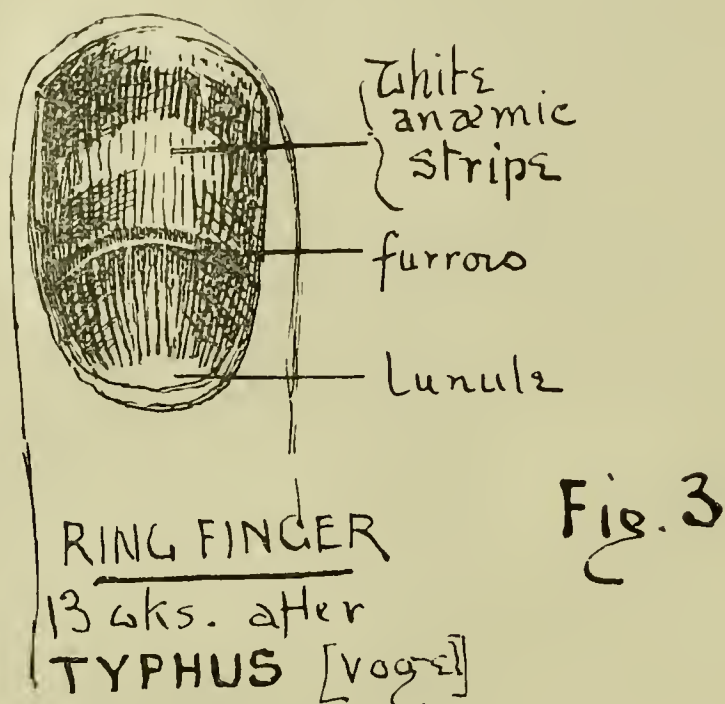 White
anæmic
stripe
furrow
Lunule
Fig. 3
RING FINGER
13 wks. after
TYPHUS [Vogel]